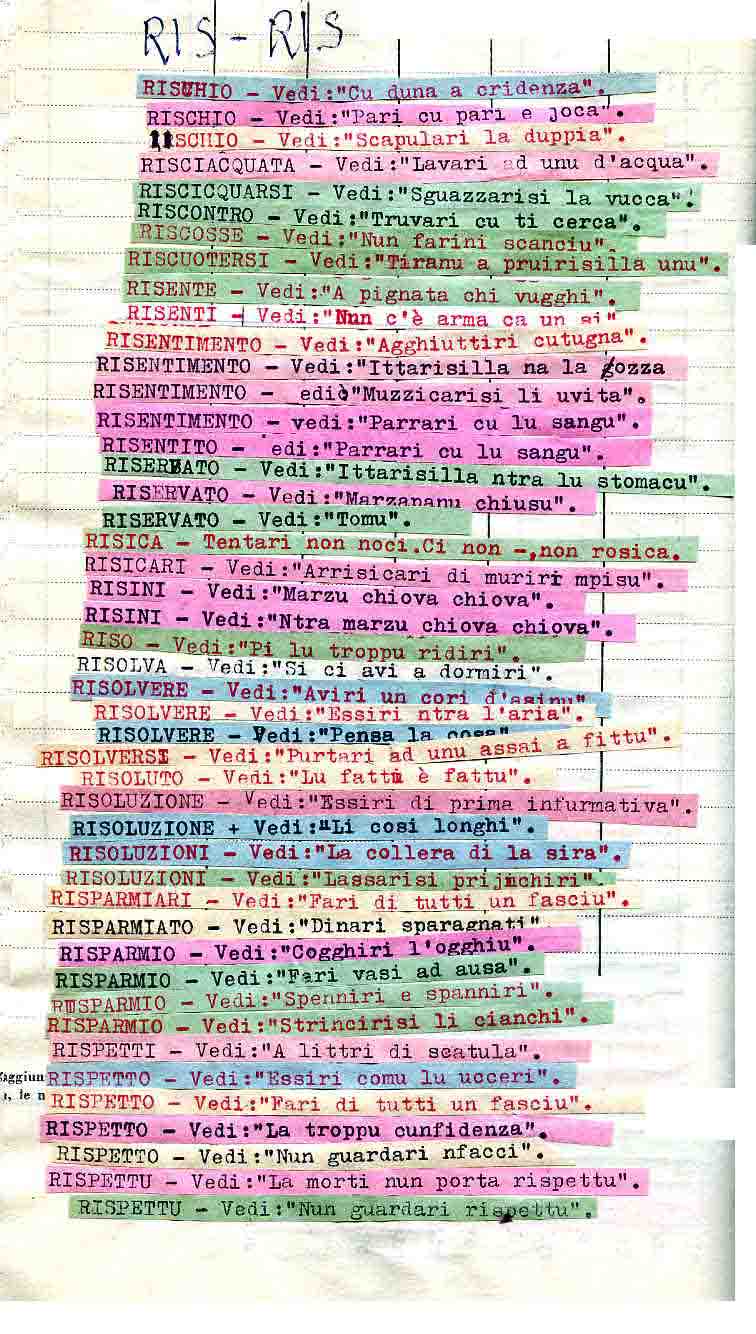 RIS-RIS
RISCHIO - Vedi:"Cu duna a cridenza".
RISCHIO - Vedi:"Pari cu pari e joca".
SCHIO - Vedi:"Scapulari la duppia".
RISCIACQUATA - Vedi:"Lavari ad unu d'acqua".
RISCICQUARSI - Vedi:"Sguazzarisi la vucca".
RISCONTRO - Vedi:"Truvari cu ti cerca".
RISCOSSE - Vedi:"Nun farini scanciu".
RISCUOTERSI - Vedi:"Tiranu a pruirisilla unu".
RISENTE - Vedi:"A pignata chi vugghi".
RISENTI - Vedi:"Nun c'è arma ca un si"
RISENTIMENTO - Vedi:"Agghiuttiri cutugna".
RISENTIMENTO - Vedi:"Ittarisilla na la gozza
RISENTIMENTO - edi"Muzzicarisi li uvita".
RISENTIMENTO - vedi:"Parrari cu lu sangu".
RISENTITO - edi:"Parrari cu lu sangu".
RISERBATO - Vedi:"Ittarisilla ntra lu stomacu".
RISERVATO - Vedi:"Marzapanu chiusu".
RISERVATO - Vedi:"Tomu".
RISICA - Tentari non noci.Ci non -,non rosica.
RISICARI - Vedi:"Arrisicari di muriri mpisu".
RISINI - Vedi:"Marzu chiova chiova".
RISINI - Vedi:"Ntra marzu chiova chiova".
RISO - Vedi:"Pi lu troppu ridiri".
RISOLVA - Vedi:"Si ci avi a dormiri".
RISOLVERE - Vedi:"Aviri un cori d'asinu"
RISOLVERE - Vedi:"Essiri ntra l'aria".
RISOLVERE - Vedi:"Pensa la cosa"
RISOLVERSI - Vedi:"Purtari ad unu assai a fittu".
RISOLUTO - Vedi:"Lu fattu è fattu".
RISOLUZIONE - Vedi:"Essiri di prima infurmativa".
RISOLUZIONE + Vedi:"Li cosi longhi".
RISOLUZIONI - Vedi:"La collera di la sira".
RISOLUZIONI - Vedi:"Lassarisi prijnchiri".
RISPARMIARI - Vedi:"Fari di tutti un fasciu".
RISPARMIATO - Vedi:"Dinari sparagnati"
RISPARMIO - Vedi:"Cogghiri l'ogghiu".
RISPARMIO - Vedi:"Fari vasi ad ausa".
RISPARMIO - Vedi:"Spenniri e spanniri".
RISPARMIO - Vedi:"Strincirisi li cianchi".
RISPETTI - Vedi:"A littri di scatula".
aggiun
RISPETTO - Vedi:"Essiri comu lu ucceri".
, le n
RISPETTO - Vedi:"Fari di tutti un fasciu".
RISPETTO - Vedi:"La troppu cunfidenza".
RISPETTO - Vedi:"Nun guardari nfacci".
RISPETTU - Vedi:"La morti nun porta rispettu".
RISPETTU - Vedi:"Nun guardari rispettu".